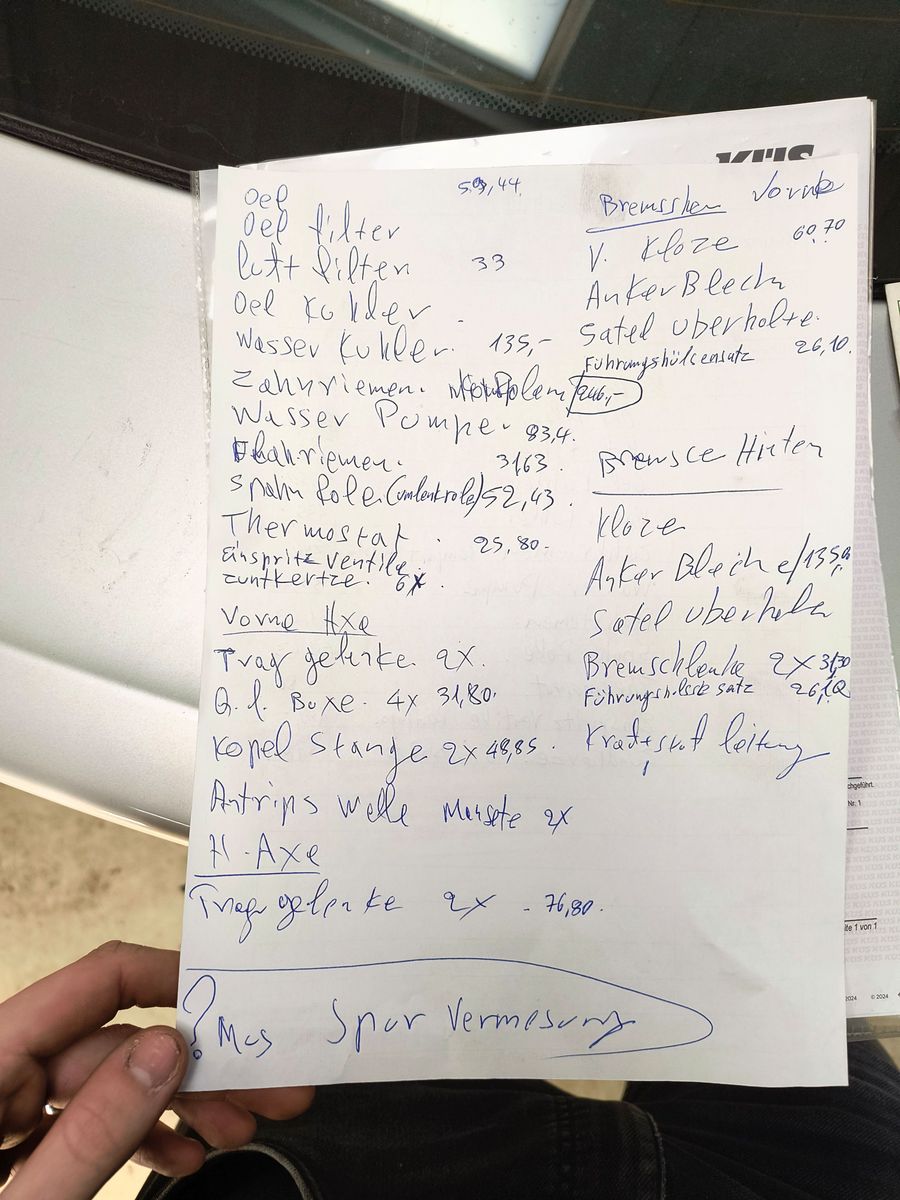 KÜS
Oel 59,44
Oel filter
luft filter 33
Oel Kuhler
Wasser Kuhler. 135,-
Zahnriemen. 246,-
Wasser Pumpe. 83,4.
riemen. 3163.
Spahn Role (umlenkrole) 52,43.
Thermostat. 25,80.
Einspritz ventile
zuntkertze. 6x.
Vorne Axe
Trag gelenke. 2x.
Q. l. Buxe. 4x 31,80.
Kopel Stange 2x 48,85.
Antrips Welle Mansete 2x
H-Axe
Trag gelenke 2x - 76,80.
? Mas Spur Vermesung
Bremsshen Vorne
V. Kloze 60,70
Anker Blech
Satel uberholte.
Führungshülsensatz 26,10.
Bremsce Hinten
Kloze
Anker Bleche/135
Satel uberholen
Bremschlenke 2x 31,30
satz 26,10
leitung
chgeführt.
Nr. 1
ite 1 von 1
2024 © 2024